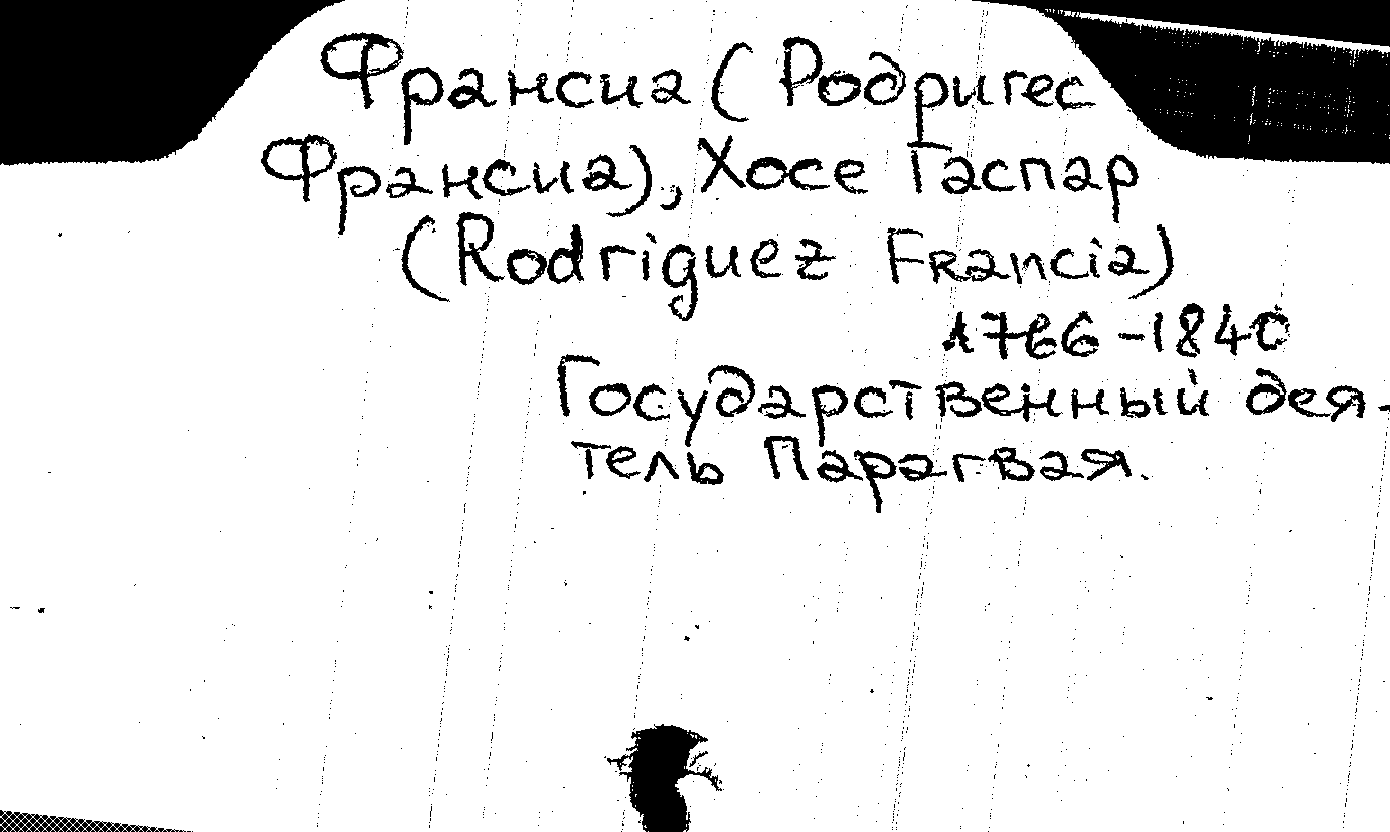 Франсиа (Родригес
Франсиа), Хосе Гаспар
(Rodriguez Francia)
1766-1840
Государственный дея-
тель Парагвая.